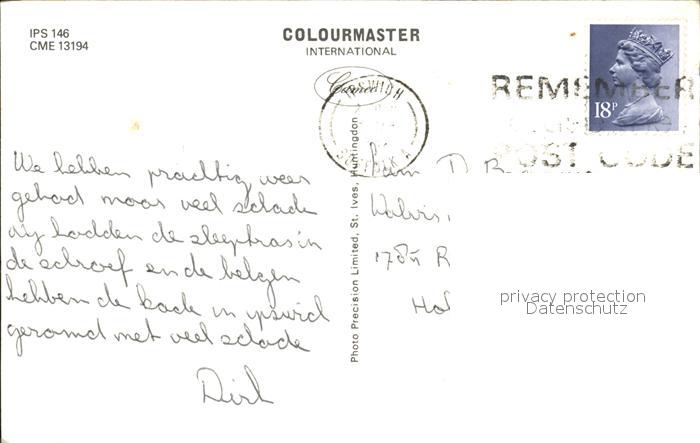 IPS 146
CME 13194
COLOURMASTER
INTERNATIONAL
IPSWICH
SUFFOLK
REMEMBER
POST CODE
18P
We hebben prachtig weer
gehad maar veel schade
wy hadden de sleeptros in
de schroef en de belgen
hebben de kade in ipswich
geramd met veel schade
Dirk
Photo Precision Limited, St. Ives, Huntingdon
Fam D B
Walvis
R
Hol
privacy protection
Datenschutz